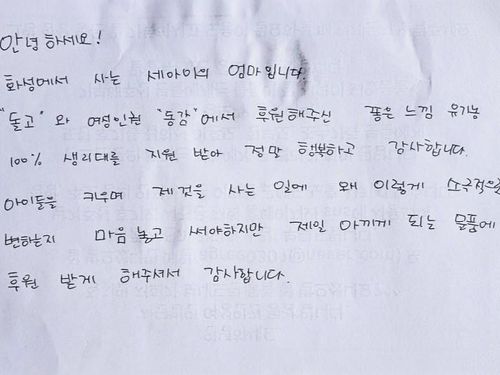 안녕하세요!
화성에서 사는 세아이의 엄마입니다.
"돌고"와 여성인권 "동감"에서 후원해주신 좋은 느낌 유기농
100% 생리대를 지원 받아 정말 행복하고 감사합니다.
아이들을 키우며 제것을 사는 일에 왜 이렇게 소극적으로
변하는지 마음 놓고 써야하지만 제일 아끼게 되는 물품에
후원 받게 해주셔서 감사합니다.